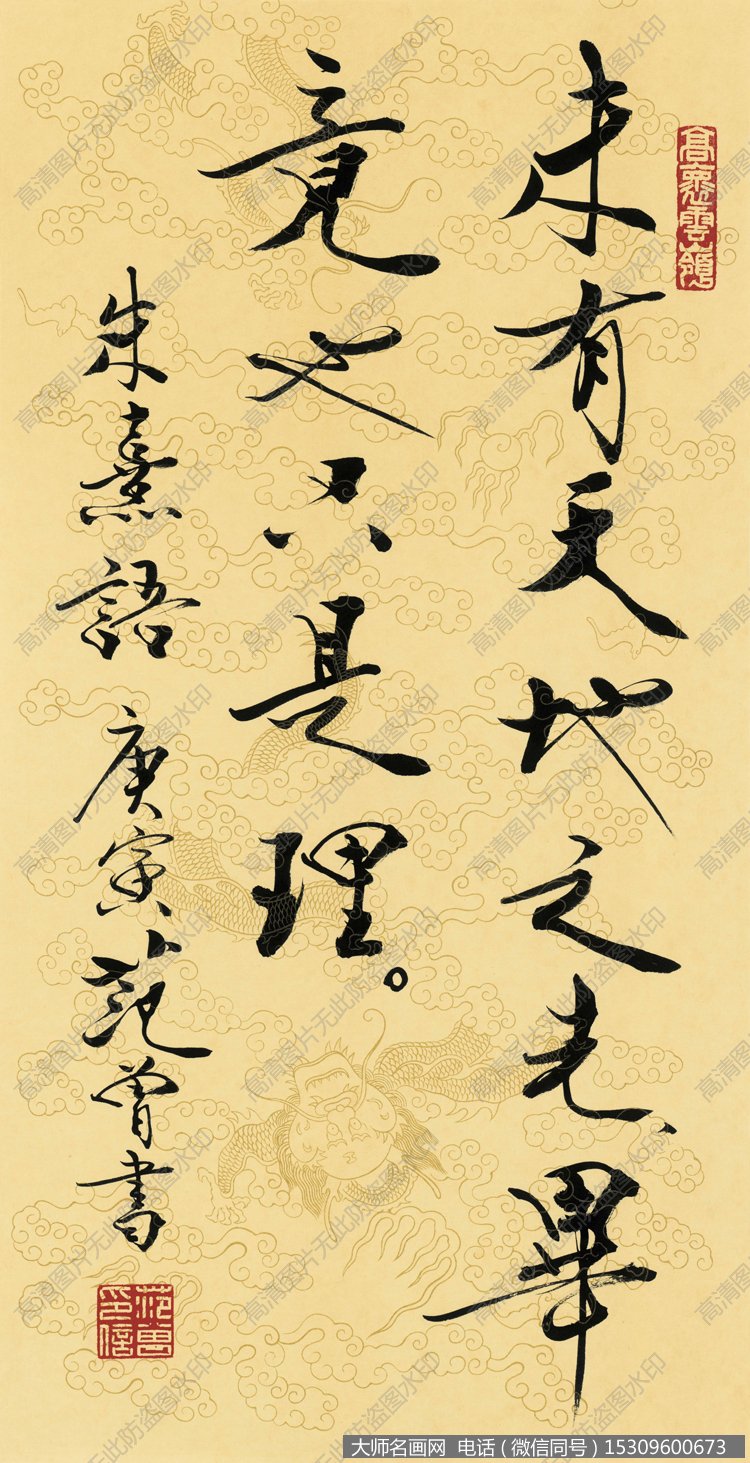 未有天地之先、畢
竟也只是理。
朱熹語 庚寅 范曾書
范曾印信
高清图片无此防盗图水印
大师名画网 电话（微信同号）15309600673